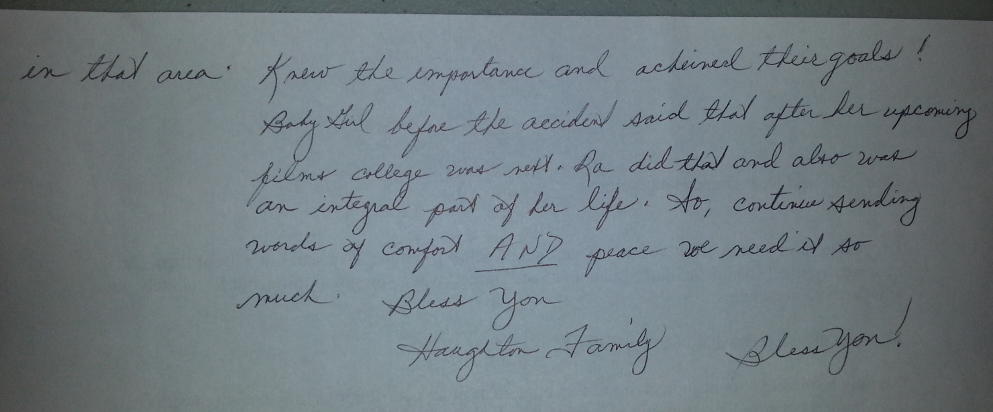 in that area. Knew the importance and acheived their goals!
Baby Girl before the accident said that after her upcoming
films college was next. Ra did that and also was
an integral part of her life. So, continue sending
words of comfort AND peace we need it so
much. Bless You
Haughton Family Bless You!